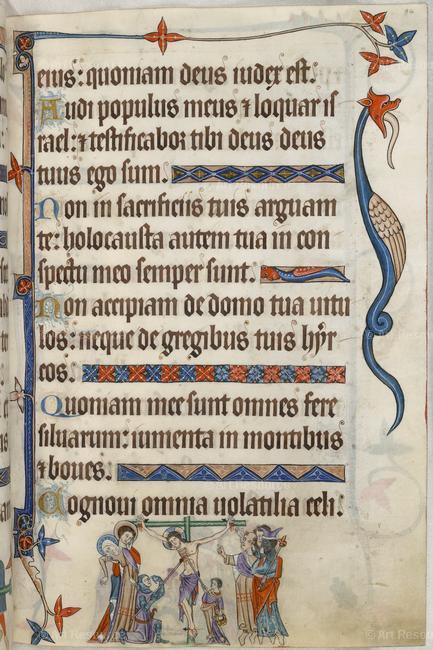 94
eius: quoniam deus iudex est.
Audi populus meus ⁊ loquar is
rael: ⁊ testificabor tibi deus deus
tuus ego sum.
Non in sacrificiis tuis arguam
te: holocausta autem tua in con
spectu meo semper sunt.
Non accipiam de domo tua uitu
los: neque de gregibus tuis hyr
cos.
Quoniam mee sunt omnes fere
siluarum: iumenta in montibus
⁊ boues.
Cognoui omnia uolatilia celi:
© Art Resource